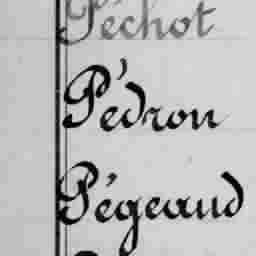 Péchot
Pédron
Pégeaud